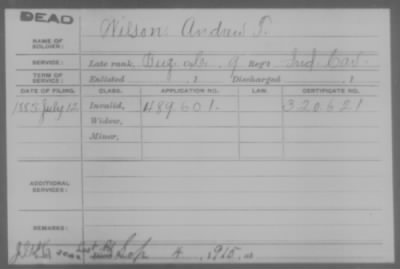 DEAD
NAME OF SOLDIER: Wilson Andrew
SERVICE: Late rank, Bugler, Reg't Ind. Cav.
TERM OF SERVICE: Enlisted , 1 Discharged , 1
DATE OF FILING. CLASS. APPLICATION NO. LAW. CERTIFICATE NO.
1883 July 12 Invalid, 489601. 320621
Widow,
Minor,
ADDITIONAL SERVICES:
REMARKS:
4, 1915,